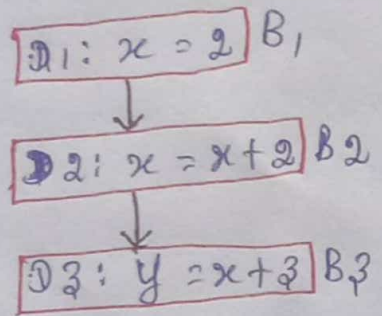 D1: x = 2 B1
D2: x = x+2 B2
D3: y = x+3 B3